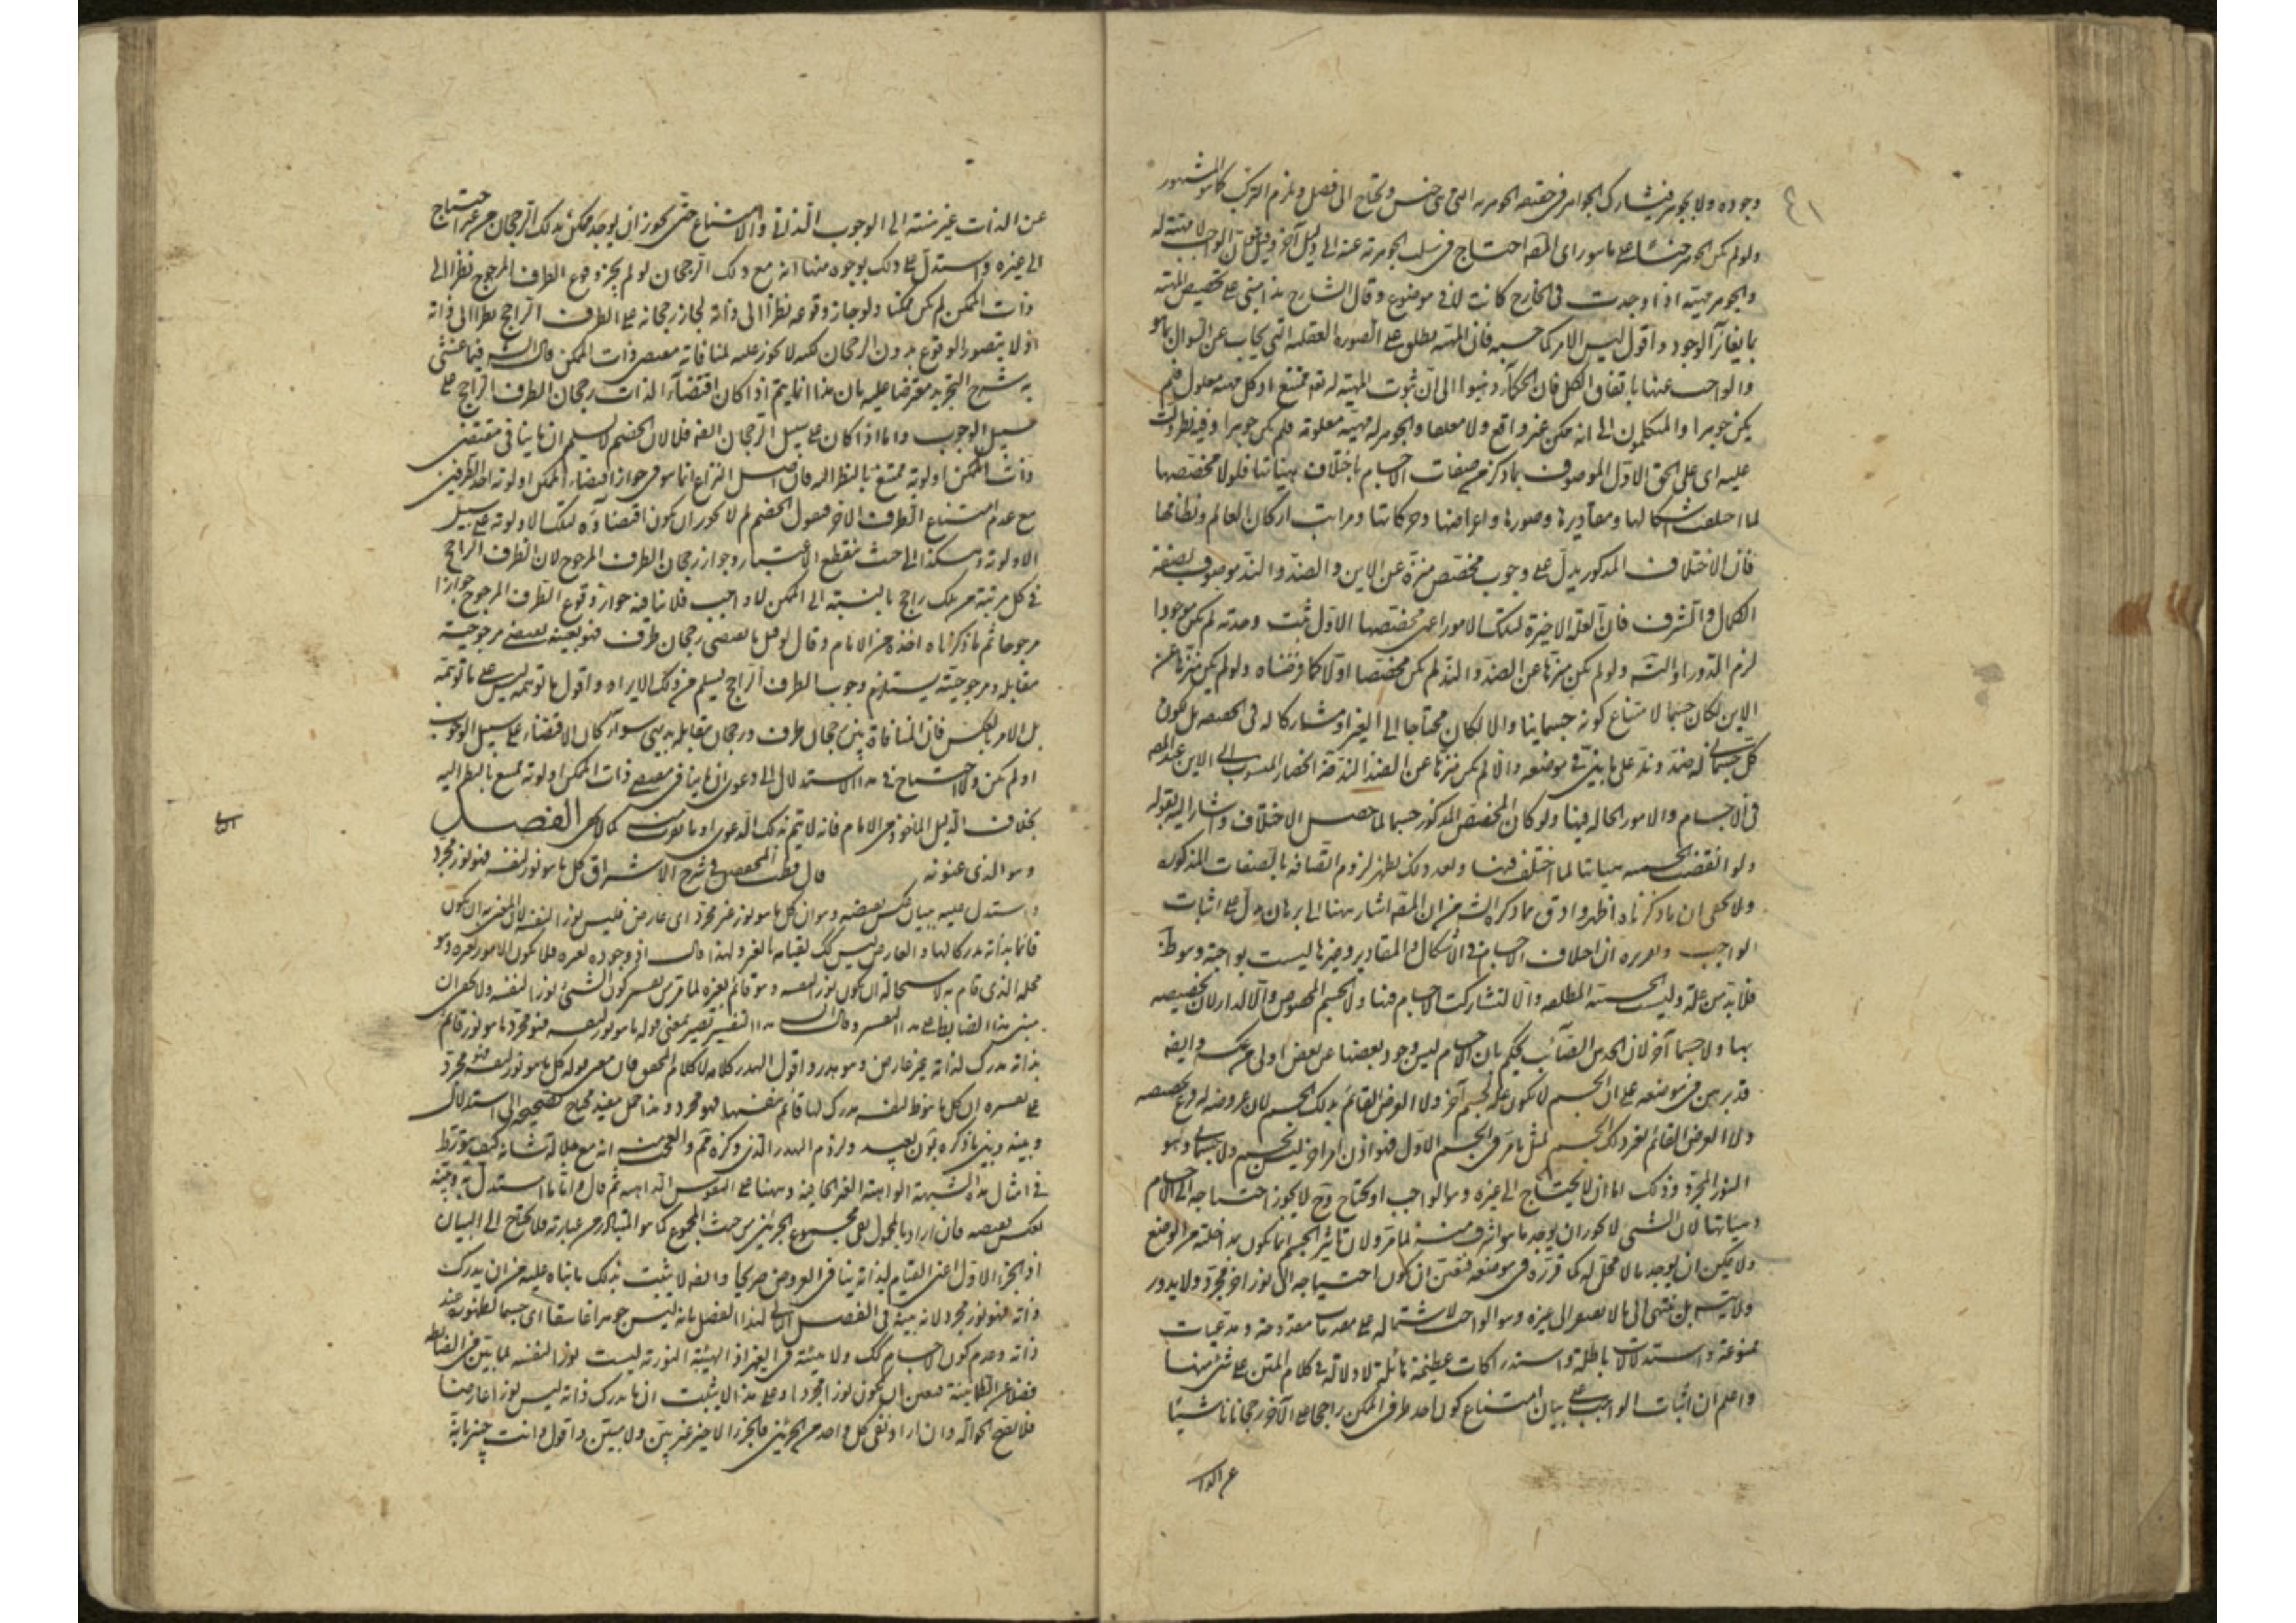 وجوده ولا بجوهر فيشارك الجواهر في حقيقة الجوهرية التي هي جنس ويحتاج الى فصل ويلزم التركب كما هو المشهور
ولو لم يكن الجوهر جنسا على ما هو راى المصه احتاج في سلب الجوهرية عنه الى دليل آخر وقيل ان الواجب لا مهية له
والجوهر مهية اذا وجدت في الخارج كانت لا في موضوع وقال الشارح هذا مبنى على تخصيص المهية
بما يغاير الوجود واقول ليس الامر كما حسبه فان المهية يطلق على الصورة العقلية التي يجاب عن السوال بما هو
والواجب عنها باتفاق الكل فان الحكماء ذهبوا الى ان ثبوت المهية له تعه ممتنع اذ كل مهية معلول فلم
يكن جوهرا والمتكلمون الى انه ممكن غير واقع ولا معلما والجوهر له مهية معلومة فلم يكن جوهرا وفيه نظر ودلت
عليه اى على الحق الاول الموصوف بما ذكر من صفات الاجسام باختلاف هيئاتها فلولا مخصصها
لما اختلفت اشكالها ومقاديرها وصورها واعراضها وحركاتها ومراتب اركان العالم ونظاتها
فان الاختلاف المذكور يدل على وجوب مخصص منزه عن الاين والضد والند موصوف بصفة
الكمال والشرف فان العلة الاخيرة لتلك الامور اعنى مخصصها الاول ثبت وحدته لم يكن موجودا
لزم الدور او التسه ولو لم يكن منزها عن الضد والند لم يكن مخصصا اولا كما فرضناه ولو لم يكن منزها عن
الاين لكان جسما لامتناع كونه جسمانيا والا لكان محتاجا الى الغير او مشاركا له في الحقيقة بل يكون
كل جسمانى له ضد وند على ما بين في موضعه والا لم يكن منزها عن الضد والند قة انحصار المنسوب الى الاين عند المصه
في الاجسام والامور الحالة فيها ولو كان المخصص المذكور جسما لما حصل الاختلاف واشار اليه بقوله
ولو اقتضت الجسمية هيئاتها لما اختلف فيها وبعد ذلك يظهر لزوم اتصافه بالصفات المذكورة
ولا يخفى ان ما ذكرناه اظهر واوفق مما ذكره الشه من ان المصه اشار ههنا الى برهان يدل على اثبات
الواجب وتقريره ان اختلاف الاجسام في الاشكال والمقادير وغيرها ليست بواجبة وهو ظ
فلابد من علة وليست الجسمية المطلقة والا لتشاركت الاجسام فيها ولا الجسم المخصوص والا لدار لان تخصيصه
بها ولا جسما آخر لان الحدس الصائب يحكم بان الاجسام ليس وجود بعضها عن بعض اولى من عكسه وايضه
قد برهن في موضعه على ان الجسم لا يكون علة لجسم آخر ولا العرض القائم بذلك الجسم لان عروضه له فرع تخصصه
ولا العرض القائم لغير ذلك الجسم لمثل ما مر في الجسم الاول فهو اذن امر آخر ليس بجسم ولا جسمانى وهو
النور المجرد وذلك اما ان لا يحتاج الى غيره وهو الواجب او يحتاج وح لا يجوز احتياجه الى الاجسام
وهيئاتها لان الشئ لا يجوز ان يوجد ما هو اشرف منه لما مر ولان تاثير الجسم انما يكون بمداخلة من الوضع
ولا يمكن ان يوجد ما لا محل له كما قرره في موضعه فتعين ان يكون احتياجه الى نور آخر مجرد ولا يدور
ولا يتسه بل ينتهى الى ما لا يفتقر الى غيره وهو الواجب لاشتماله على مقدمات مقدوحة ومدعيات
ممنوعة واستدلالات باطلة واستدراكات عظيمة هائلة لا دلالة في كلام المتن على شئ منها
واعلم ان اثبات الواجب على بيان امتناع كون احد طرفى الممكن راجحا على الآخر رجحانا ناشيئا
عن الذات
عن الذات غير منته الى الوجوب الذاتى والامتناع حتى يجوز ان يوجد ممكن بذلك الرجحان من غير احتياج
الى غيره واستدل على ذلك بوجوه منها انه مع ذلك الرجحان لو لم يجز وقوع الطرف المرجوح نظرا الى
ذات الممكن لم يكن ممكنا ولو جاز وقوعه نظرا الى ذاته لجاز رجحانه على الطرف الراجح نظرا الى ذاته
اذ لا يتصور الوقوع بدون الرجحان لكنه لا يجوز عليه لمنافاته مقتضى ذات الممكن قال الشه فيما غشى
به شرح التجريد معترضا عليه بان هذا انما يتم اذا كان اقتضاء الذات رجحان الطرف الراجح على
سبيل الوجوب واما اذا كان على سبيل الرجحان ايضه فلا لان الخصم لا يسلم ان ما ينافى مقتضى
ذات الممكن اولوية ممتنع بالنظر اليه فان اصل النزاع انما هو في جواز اقتضاء الممكن اولوية احد الطرفين
مع عدم امتناع الطرف الآخر فيقول الخصم لم لا يجوز ان يكون اقتضاؤه لتلك الاولوية على سبيل
الاولوية وهكذا الى حيث ينقطع الاعتبار وجواز رجحان الطرف المرجوح لان الطرف الراجح
في كل مرتبة من تلك راجح بالنسبة الى الممكن لا واجب فلا ينافيه جواز وقوع الطرف المرجوح جوازا
مرجوحا ثم ما ذكرناه اخذه من الامام وقال لو قيل ما يقتضى رجحان طرف فهو بعينه يقتضى مرجوحية
مقابله ومرجوحيته يستلزم وجوب الطرف الراجح ليسلم من ذلك الايراد واقول ما توهمه ليس على ما توهمه
بل الامر بالعكس فان المنافاة بين رجحان طرف ورجحان مقابله بديهى سواء كان الاقتضاء على سبيل الوجوب
او لم يكن ولا احتياج في هذا الاستدلال الى دعوى ان ما ينافى مقتضى ذات الممكن اولوية ممتنع بالنظر اليه
بخلاف الدليل الماخوذ من الامام فانه لا يتم بذلك الدعوى او ما يقرب منه كما لا يخفى الفصل
وهو الذى عنونه قال قطب المحققين في شرح الاشراق كل ما هو نور لنفسه فهو نور مجرد
واستدل عليه ببيان عكس نقيضه وهو ان كل ما هو نور غير مجرد اى عارض فليس نورا لنفسه لان المعنى به ان يكون
قائما بذاته مدركا لها والعارض ليس كك لقيامه بالغير ولهذا قال اذ وجوده لغيره فلا يكون الا نور لغيره وهو
محله الذى قام به لاستحالة ان يكون نورا لنفسه وهو قائم بغيره لما مر من تفسير كون الشئ نورا لنفسه ولا يخفى ان
مبنى هذا الضابط على هذا التفسير وقال الشه هذا التفسير يصير معنى قوله ما هو نور لنفسه فهو مجرد ما هو نور قائم
بذاته مدرك لذاته غير عارض وهو هدر واقول الهدر كلامه لا كلام المحقق فان معنى قوله كل ما هو نور لنفسه فهو مجرد
على تفسيره ان كل ما هو ظ لنفسه مدرك لها قائم بنفسها فهو مجرد وهذا حمل مفيد محتاج تصحيحه الى استدلال
وبينه وبين ما ذكره بون بعيد ولزوم الهدر الذى ذكره ثم والعجب منه انه مع جلالة شانه كيف تورط
في امثال هذه الشبهة الواهية الغير الخافية ثم قال واما ما استدل به وبينه
بعكس نقيضه فان اراد بالمحمول نفى مجموع الجزئين من حيث المجموع كما هو المتبادر من عبارته فلا يحتاج الى البيان
اذ الجزء الاول اعنى القيام لذاته ينافى العروض صريحا وايضه لا يثبت بذلك ما بناه عليه من ان يدرك
ذاته فهو نور مجرد لانه بينه في الفصل التالى لهذا الفصل بانه ليس جوهرا غاسقا اى جسما لظهوره عند
ذاته وعدم كون الاجسام كك ولا هيئة في الغير اذ الهيئة النورية ليست نورا لنفسه لما بين من الضابطه
فضلا عن الظلمانية فتعين ان يكون نورا مجردا وعلى هذا لا يثبت ان ما يدرك ذاته ليس نورا عارضا
فلا يصح الحوالة وان اراد نفى كل واحد من الجزئين فالجزء الاخير غير بين ولا مبين واقول انت خبير بانه